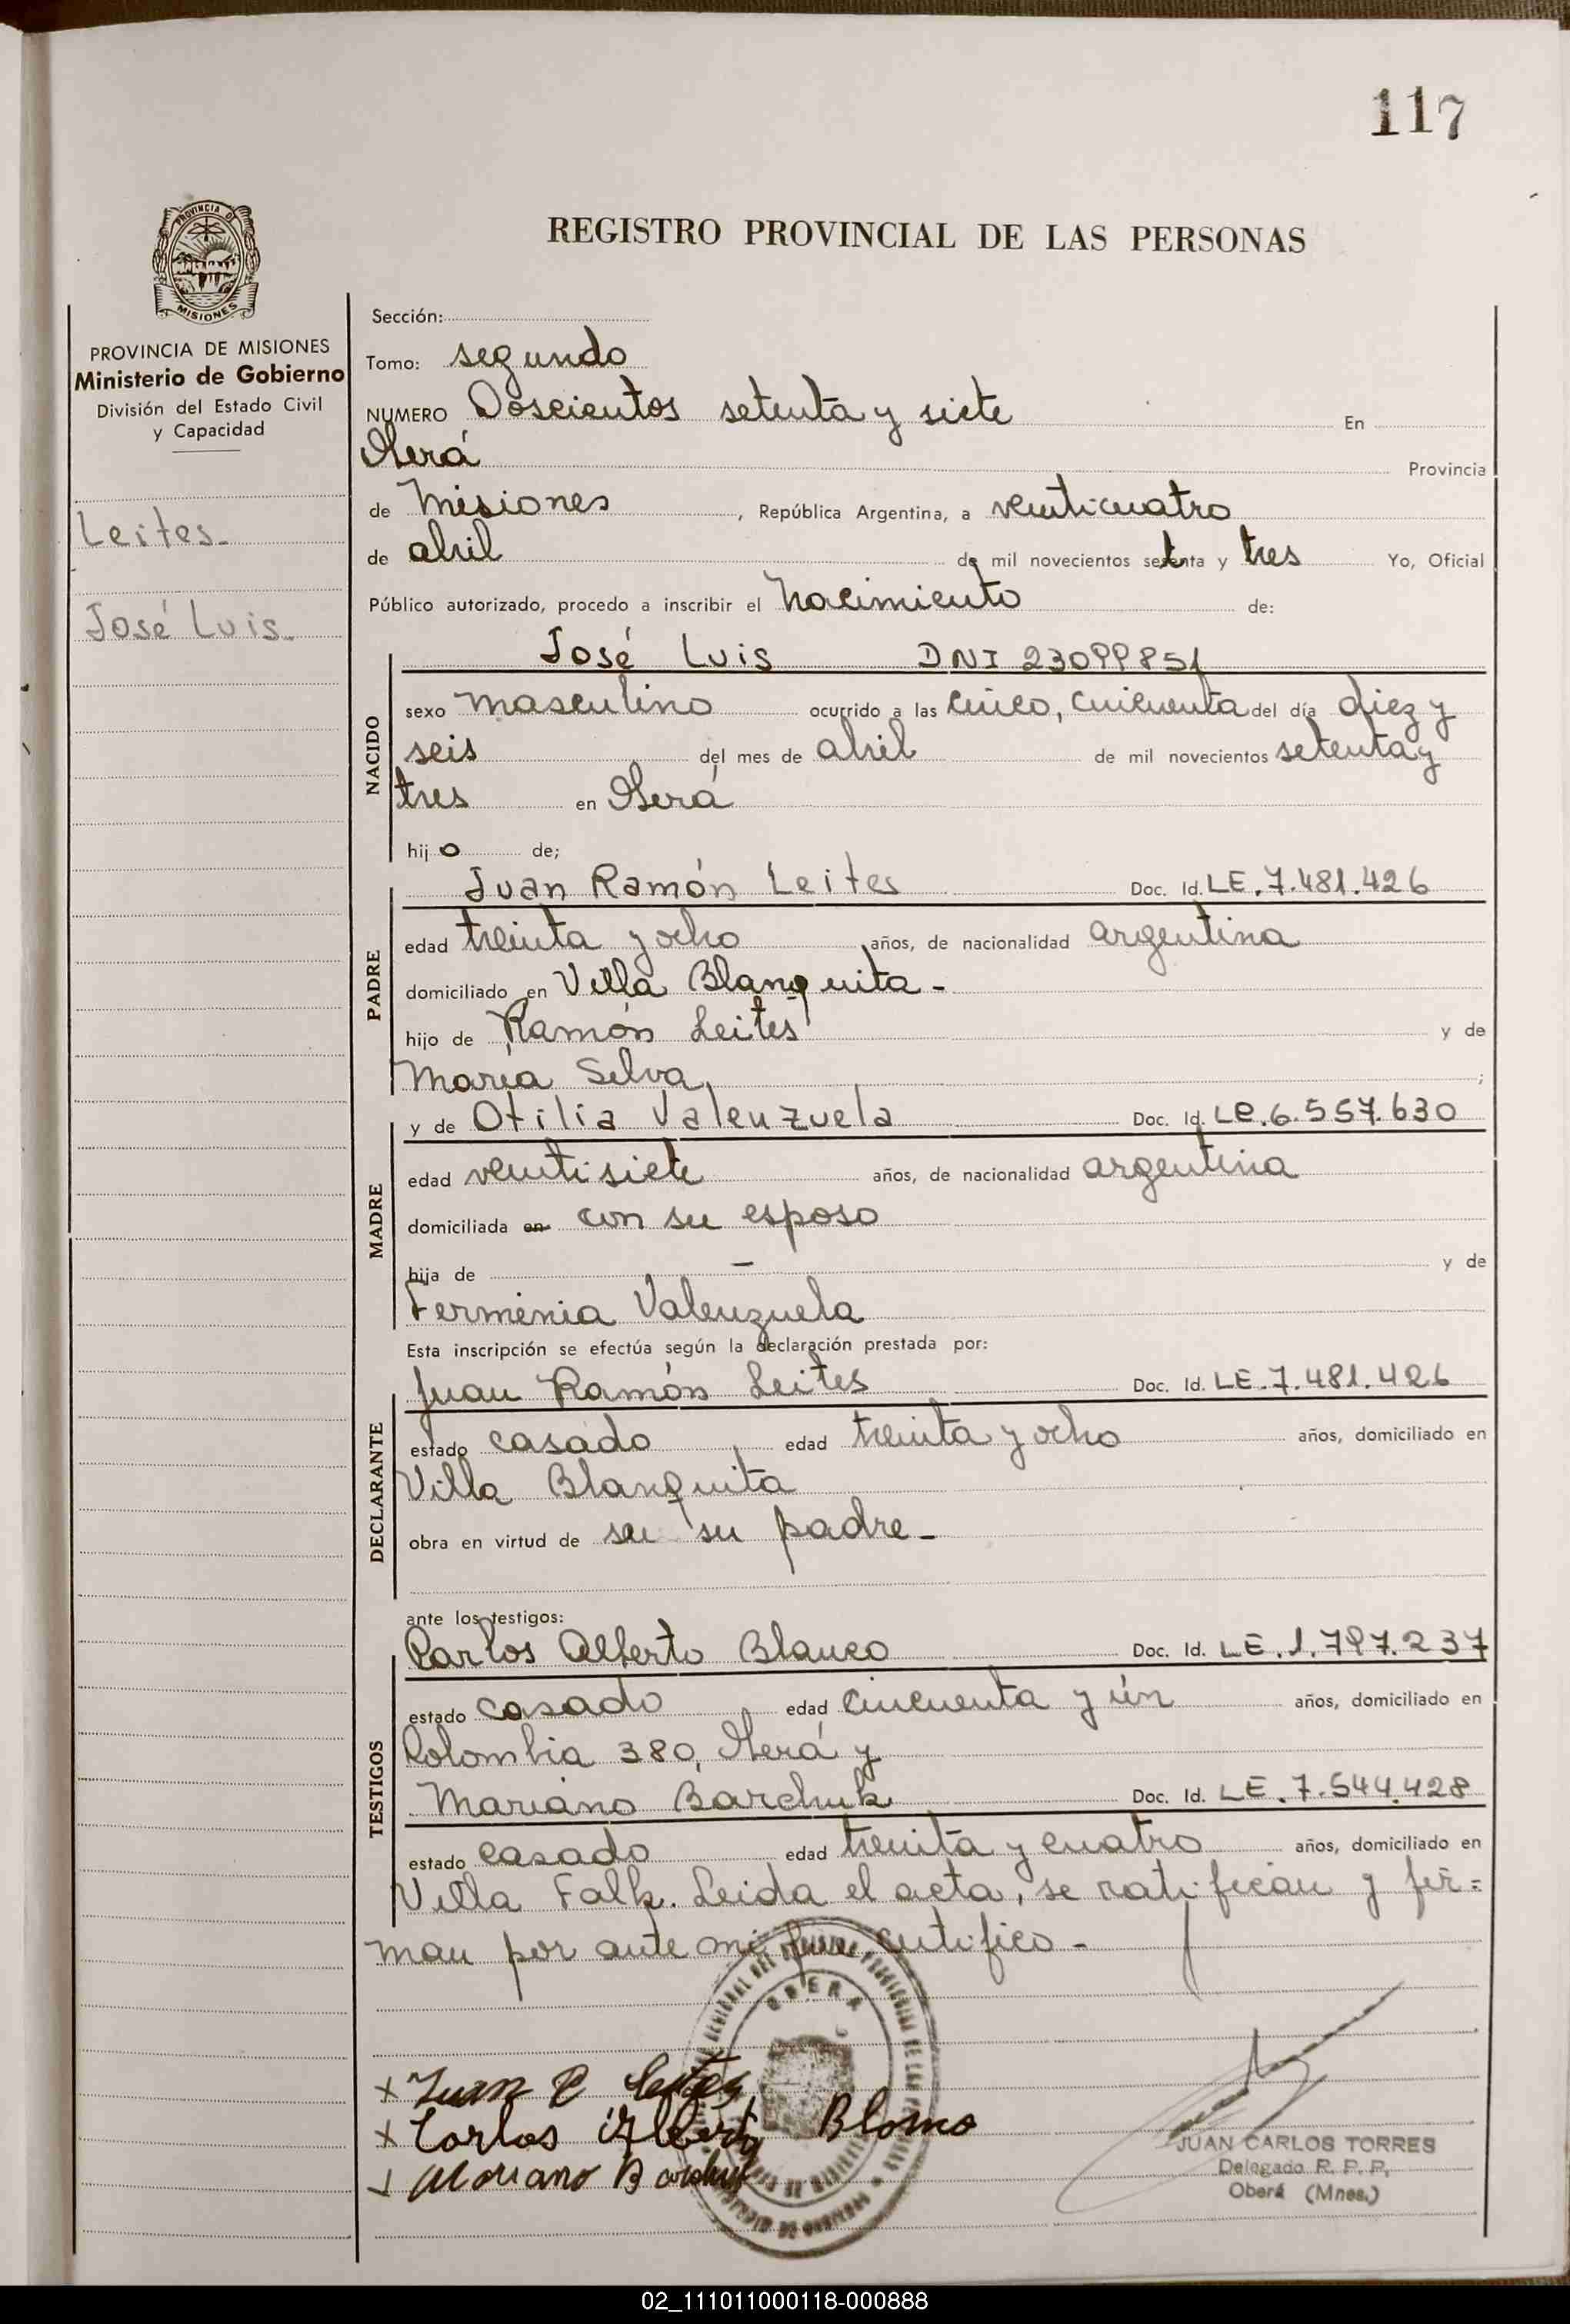 117
PROVINCIA DE
MISIONES
REGISTRO PROVINCIAL DE LAS PERSONAS
PROVINCIA DE MISIONES
Ministerio de Gobierno
División del Estado Civil
y Capacidad
Leites.
José Luis.
Sección:
Tomo: segundo
NUMERO Doscientos setenta y siete En
Oberá Provincia
de Misiones, República Argentina, a veinticuatro
de abril de mil novecientos setenta y tres Yo, Oficial
Público autorizado, procedo a inscribir el nacimiento de:
José Luis DNI 23099851
NACIDO
sexo masculino ocurrido a las cinco, cincuenta del día diez y
seis del mes de abril de mil novecientos setenta y
tres en Oberá
hijo de;
PADRE
Juan Ramón Leites Doc. Id. LE. 7.481.426
edad treinta y ocho años, de nacionalidad argentina
domiciliado en Villa Blanquita -
hijo de Ramón Leites y de
María Selva, ;
MADRE
y de Otilia Valenzuela Doc. Id. LC. 6.557.630
edad veintisiete años, de nacionalidad argentina
domiciliada en con su esposo
hija de — y de
Ferminia Valenzuela
Esta inscripción se efectúa según la declaración prestada por:
DECLARANTE
Juan Ramón Leites Doc. Id. LE. 7.481.426
estado casado, edad treinta y ocho años, domiciliado en
Villa Blanquita
obra en virtud de su padre -
ante los testigos:
TESTIGOS
Carlos Alberto Blanco Doc. Id. LE. 1.797.237
estado casado edad cincuenta y ún años, domiciliado en
Colombia 380, Oberá y
Mariano Barchuk Doc. Id. LE. 7.544.428
estado casado edad treinta y cuatro años, domiciliado en
Villa Falk. Leida el acta, se ratifican y fir=
man por ante mi que certifico -
OBERA
x Juan R Leites
x Carlos Alberto Blanco
Mariano Barchuk
JUAN CARLOS TORRES
Delegado R. P. P.
Oberá (Mnes.)
02_111011000118-000888